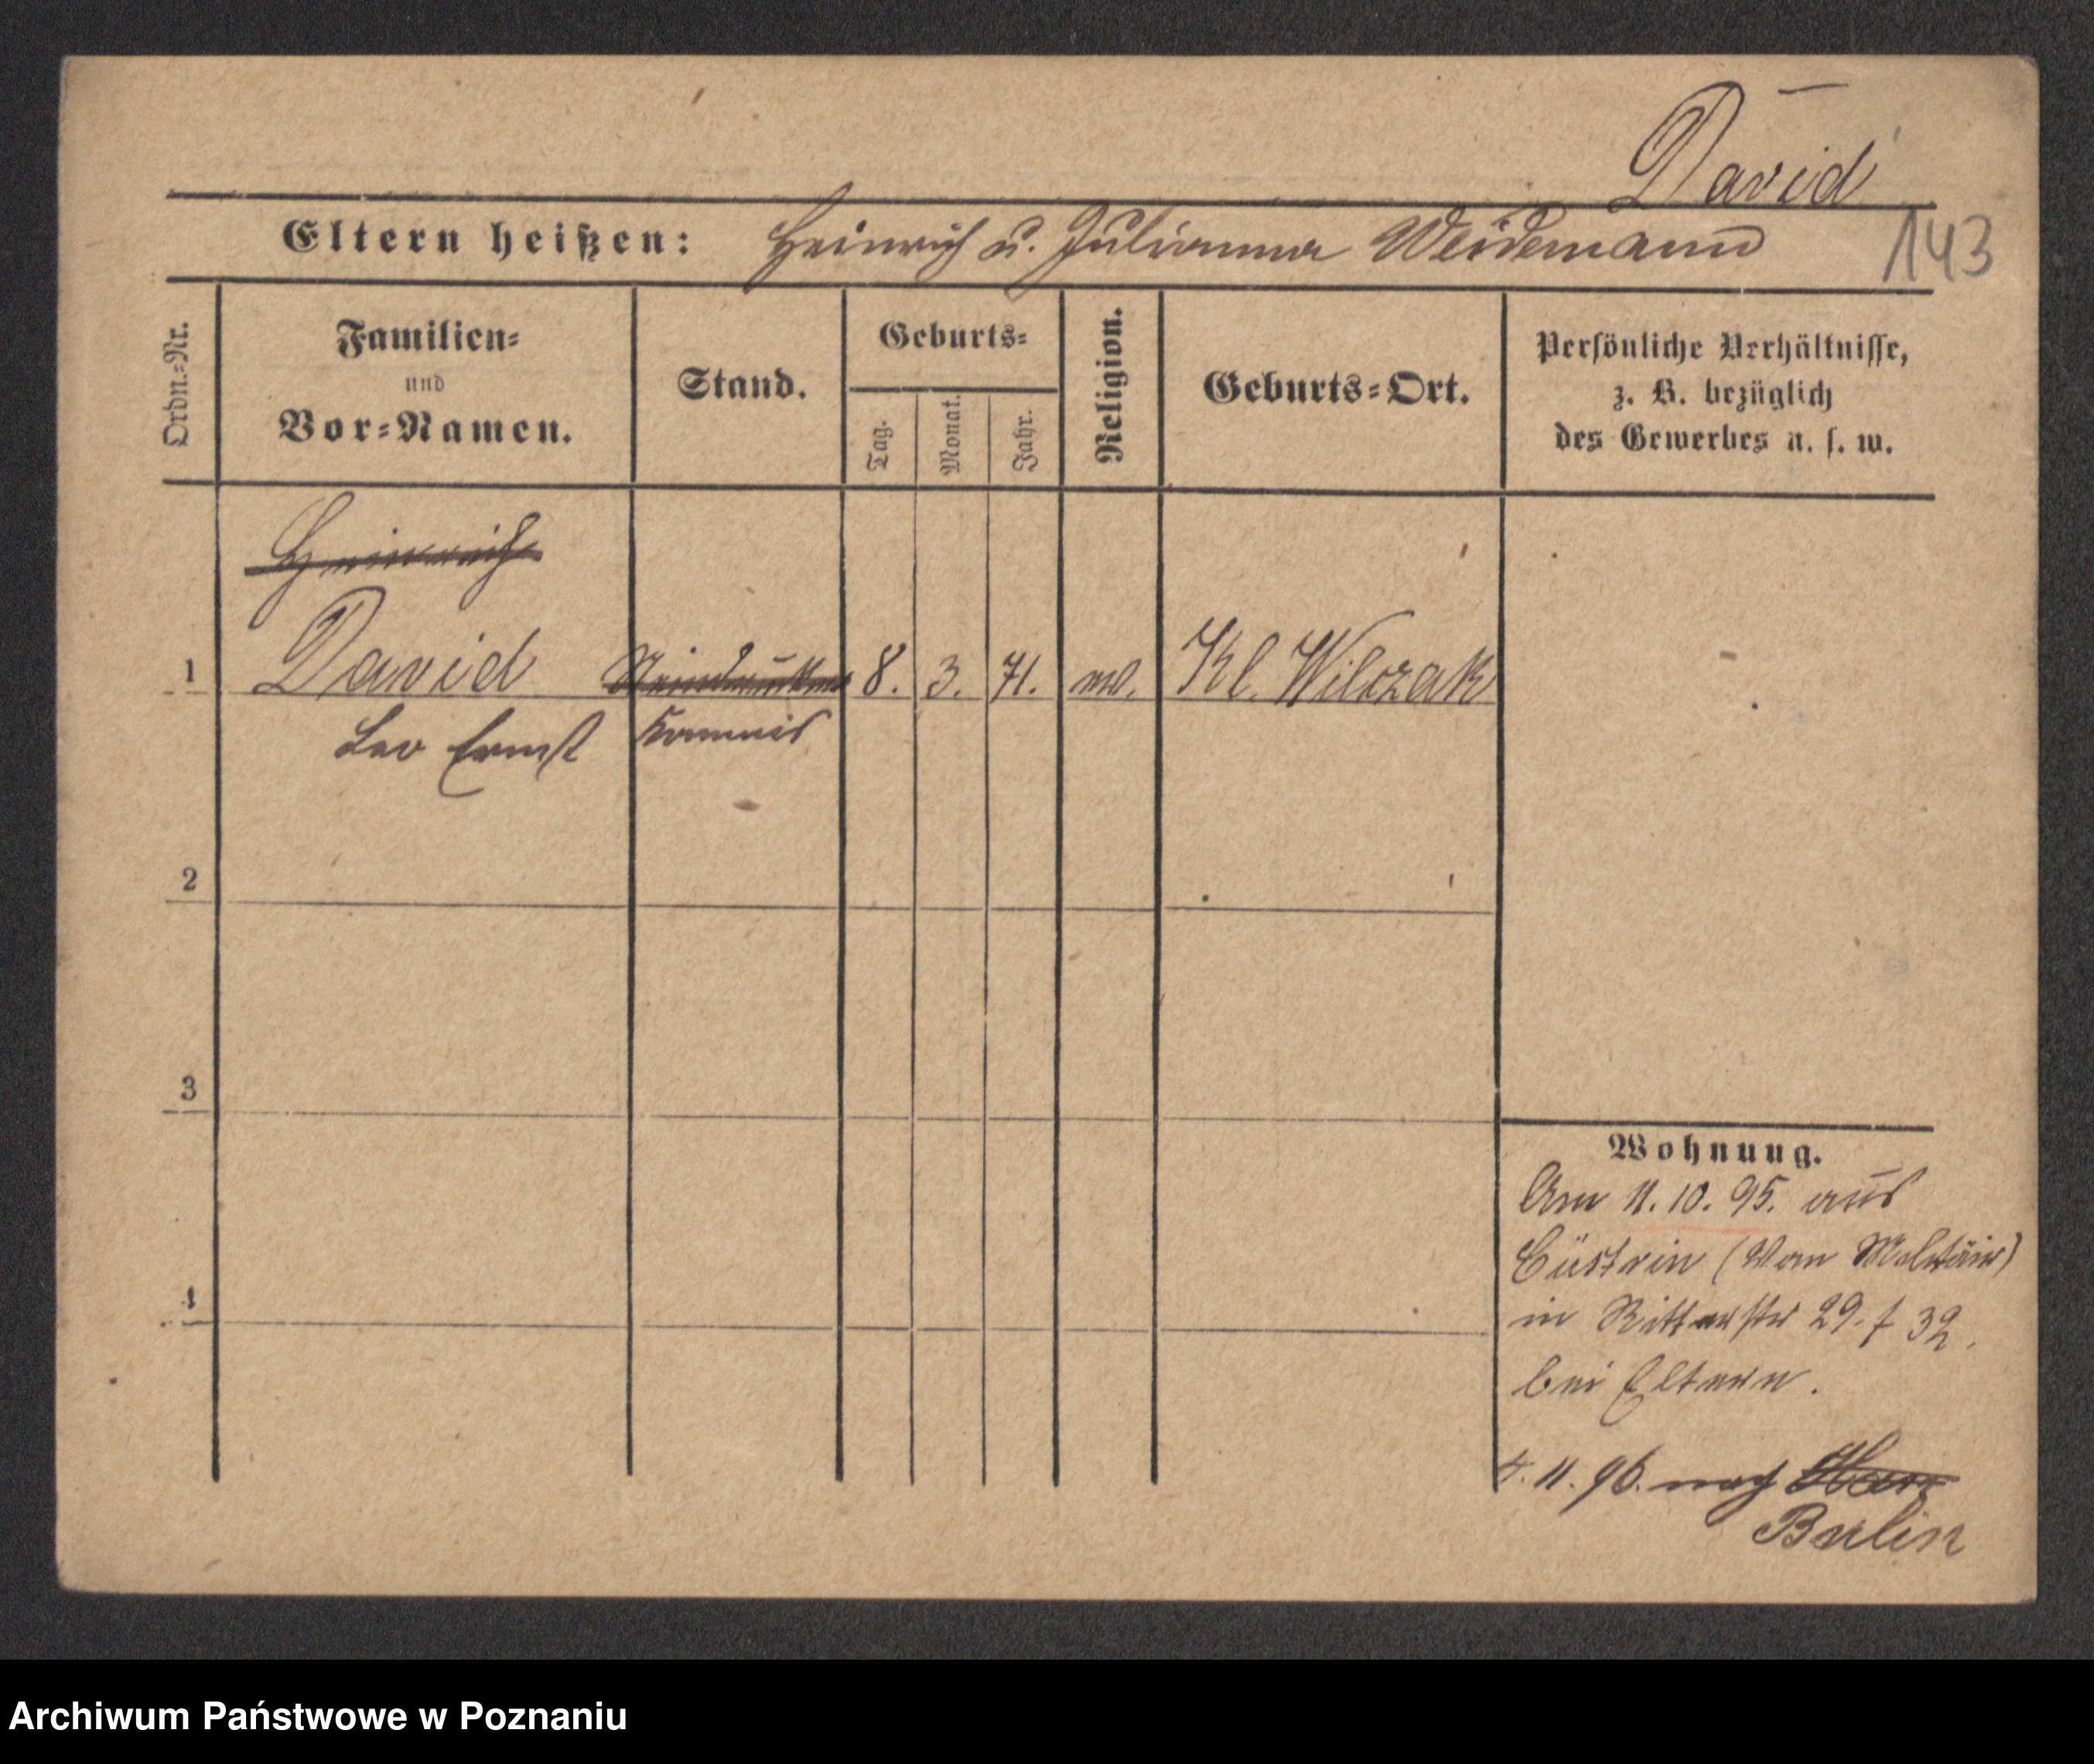 David
Eltern heißen: Heinrich u. Julianna Weidemann 143
Ordn.-Nr.
Familien-
und
Vor-Namen.
Stand.
Geburts-
Tag.
Monat.
Jahr.
Religion.
Geburts-Ort.
Persönliche Verhältnisse,
z. B. bezüglich
des Gewerbes u. s. w.
Heinrich
1 David Steindrucker 8. 3. 71. Kl. Wilczak
Leo Ernst Kommis
2
3
4
Wohnung.
Am 11. 10. 95. aus
Cüstrin (Vom Militär)
in Ritterstr 29. f 32.
bei Eltern.
4. 11. 96. nach
Berlin
Archiwum Państwowe w Poznaniu